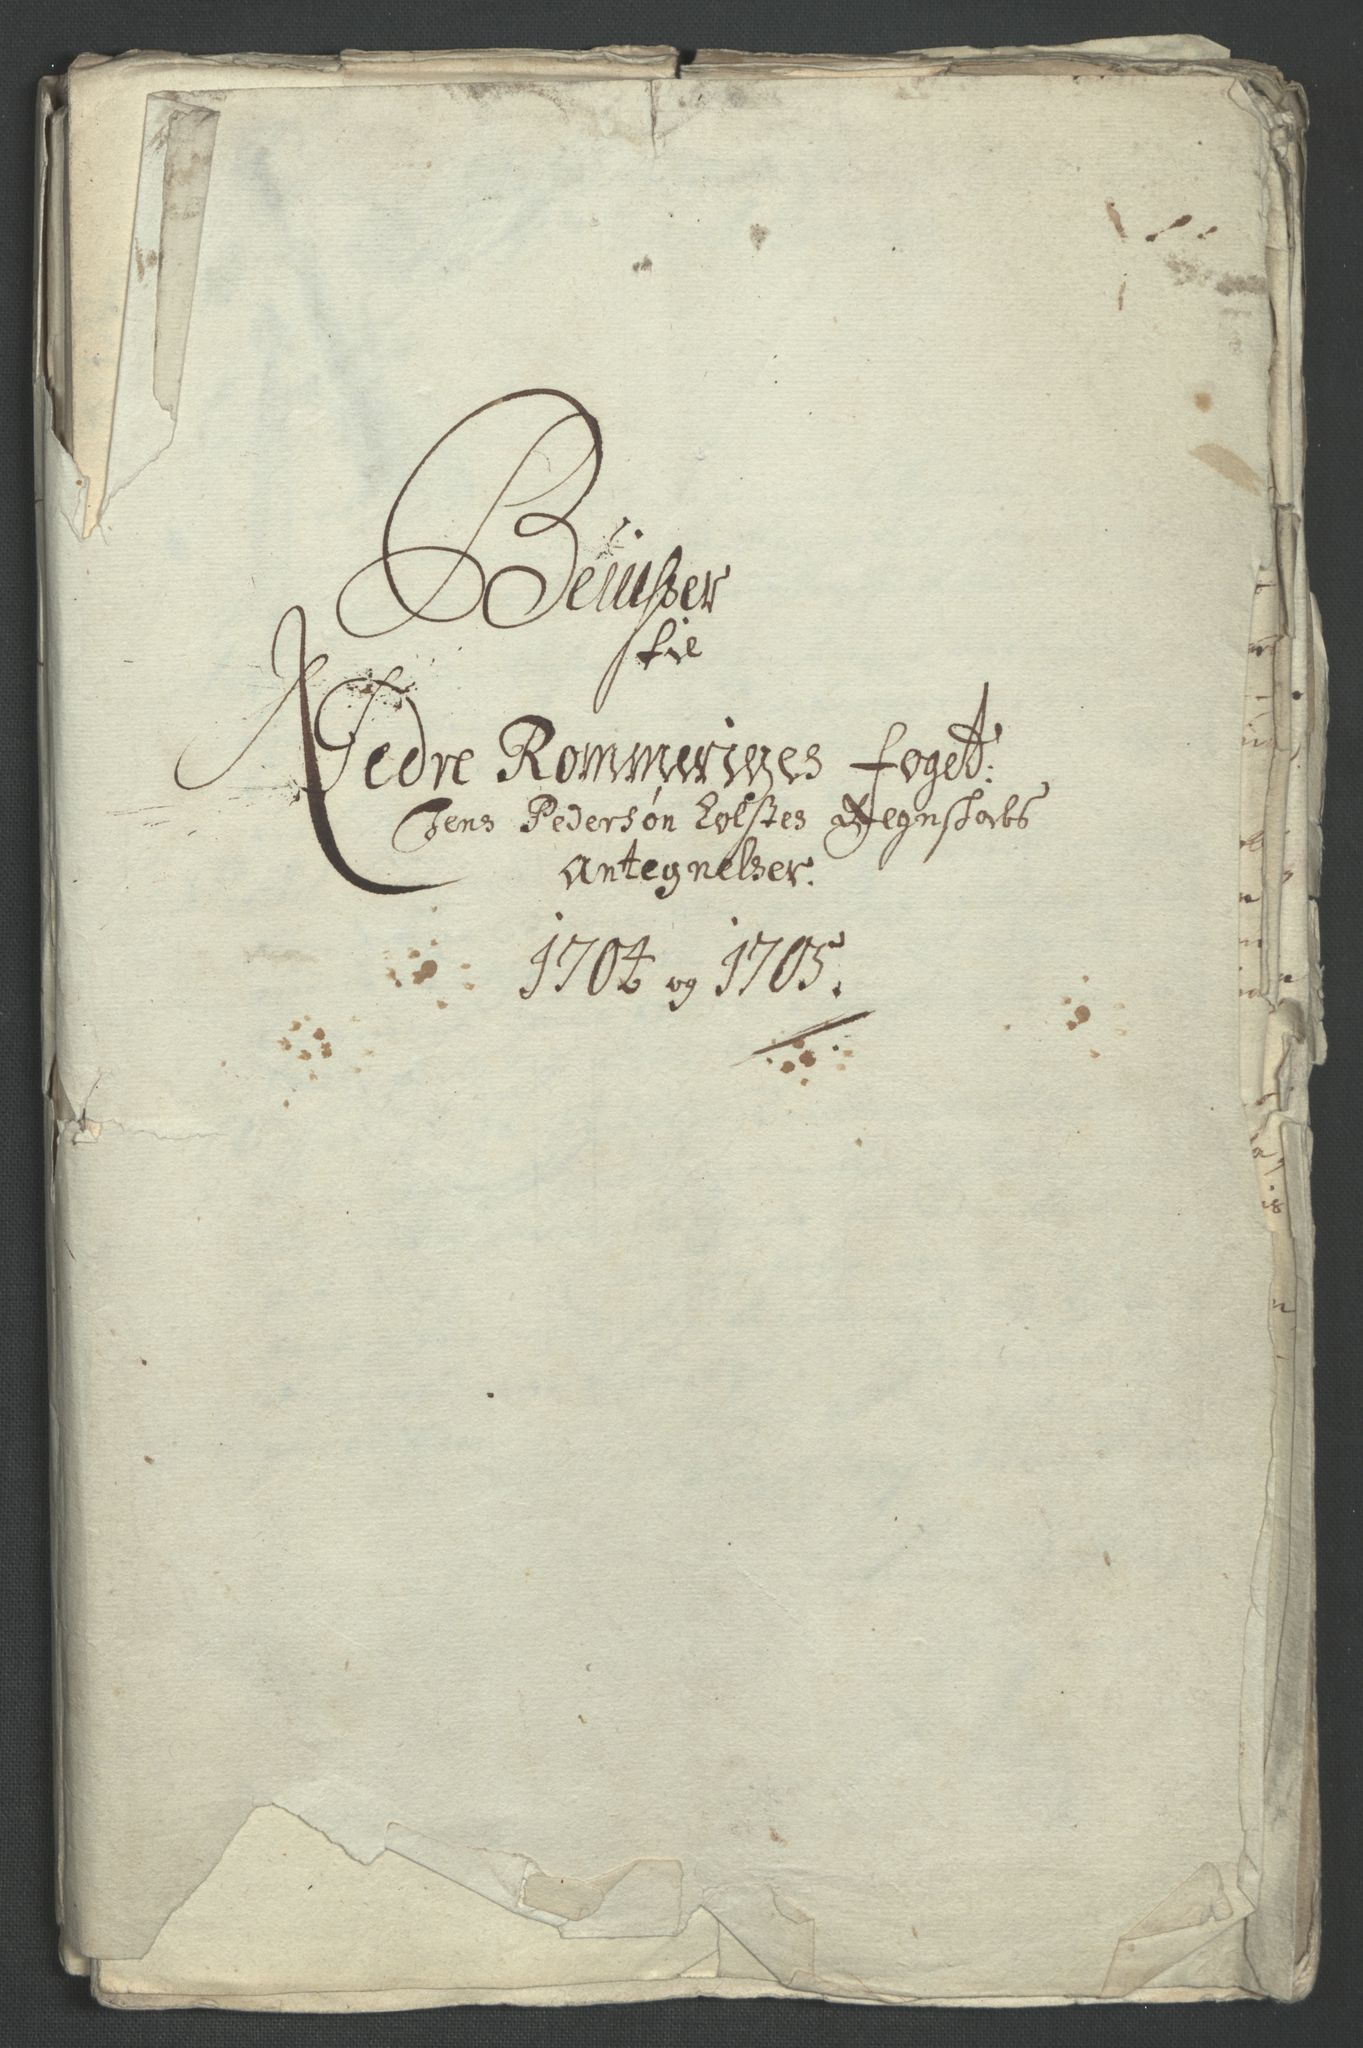 Beuißer
til
Nedre Rommeriges foget.
Jens Pedersøn Colstes Regnskabs
Antegnelser.
1704 og 1705.